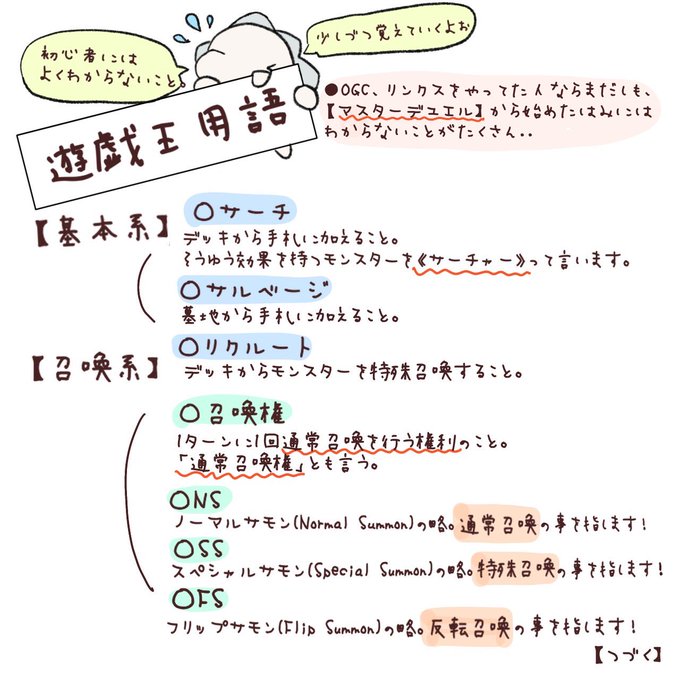 初心者には
よくわからないこと。
少しづつ覚えていくよぉ
遊戯王 用語
●OGC、リンクスをやってた人ならまだしも、
【マスターデュエル】から始めたはみには
わからないことがたくさん..
【基本系】
○サーチ
デッキから手札に加えること。
そうゆう効果を持つモンスターを《サーチャー》って言います。
○サルベージ
墓地から手札に加えること。
【召喚系】
○リクルート
デッキからモンスターを特殊召喚すること。
○召喚権
1ターンに1回通常召喚を行う権利のこと。
「通常召喚権」とも言う。
○NS
ノーマルサモン(Normal Summon)の略。通常召喚の事を指します!
○SS
スペシャルサモン(Special Summon)の略。特殊召喚の事を指します!
○FS
フリップサモン(Flip Summon)の略。反転召喚の事を指します!
【つづく】